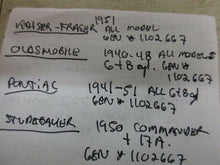 KAISER-FRASER 1951 ALL MODEL
GEN # 1102667
OLDSMOBILE 1940-48 ALL MODELS
6+8 cyl. GEN # 1102667
PONTIAC 1941-51 ALL 6+8 cyl
GEN # 1102667
STUDEBAKER 1950 COMMANDER
+ 17A.
GEN # 1102667